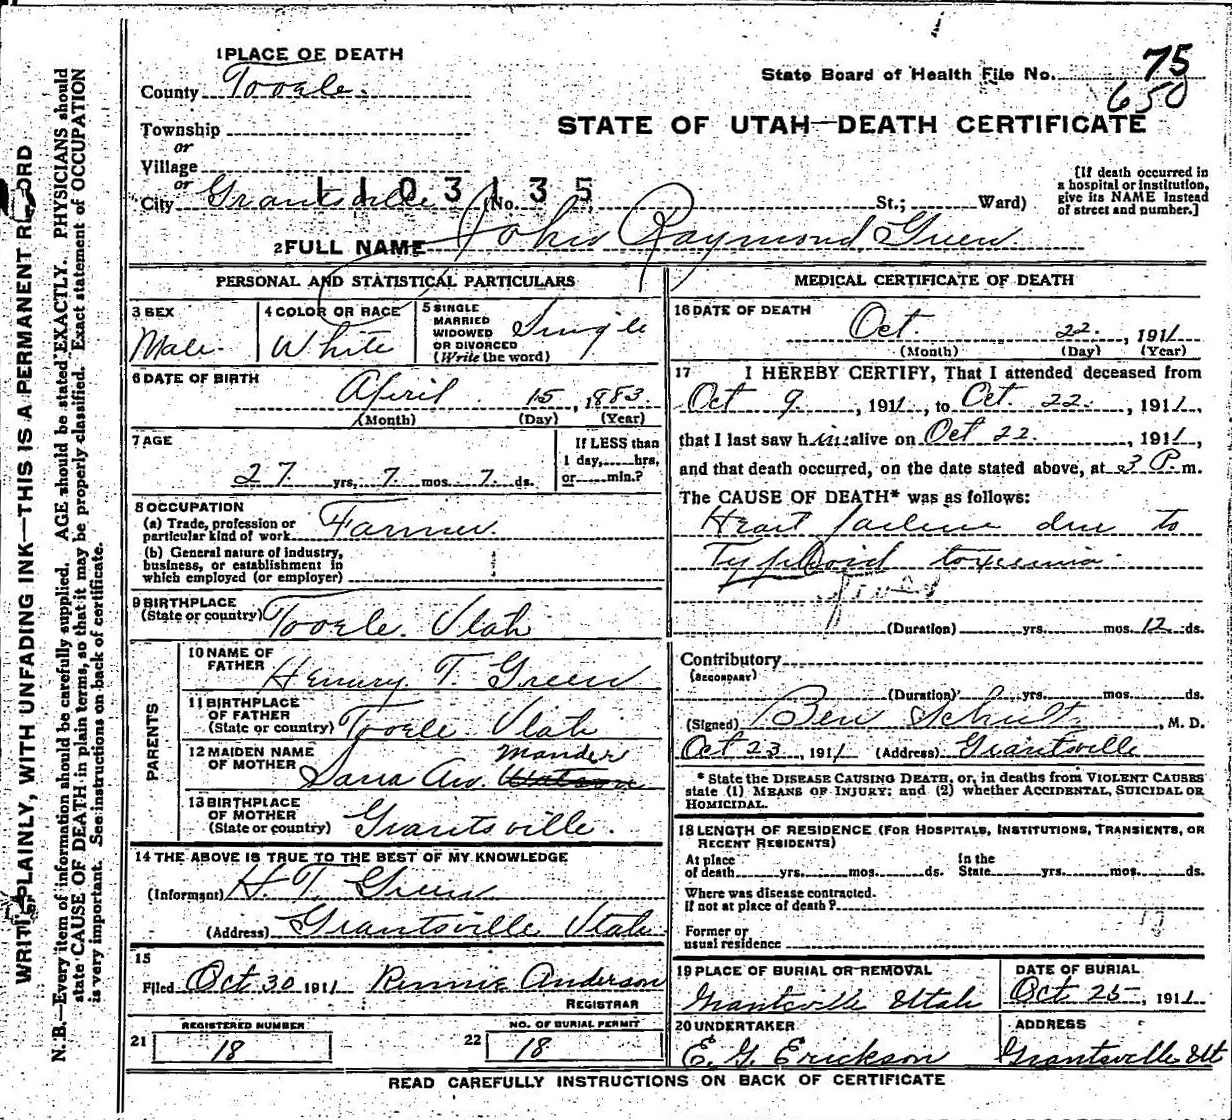 1 PLACE OF DEATH
County Tooele.
Township
or
Village
or
City Grantsville (No. St.; Ward)
1103135
State Board of Health File No. 75
650
STATE OF UTAH—DEATH CERTIFICATE
[If death occurred in
a hospital or institution,
give its NAME instead
of street and number.]
2 FULL NAME John Raymond Green
PERSONAL AND STATISTICAL PARTICULARS
3 SEX
Male.
4 COLOR OR RACE
White
5 SINGLE
MARRIED
WIDOWED
OR DIVORCED
(Write the word)
Single
6 DATE OF BIRTH
April 15, 1883.
(Month) (Day) (Year)
7 AGE
27 yrs. 7 mos. 7 ds.
If LESS than
1 day, hrs.
or min.?
8 OCCUPATION
(a) Trade, profession or
particular kind of work Farmer.
(b) General nature of industry,
business, or establishment in
which employed (or employer)
9 BIRTHPLACE
(State or country) Tooele. Utah
PARENTS
10 NAME OF
FATHER Henury T. Green
11 BIRTHPLACE
OF FATHER
(State or country) Tooele Utah
12 MAIDEN NAME
OF MOTHER Sara Ann. Mander
13 BIRTHPLACE
OF MOTHER
(State or country) Grantsville.
14 THE ABOVE IS TRUE TO THE BEST OF MY KNOWLEDGE
(Informant) H. T. Green
(Address) Grantsville Utah
15
Filed Oct 30 1911 Rennie Anderson
REGISTRAR
21 REGISTERED NUMBER
18
22 NO. OF BURIAL PERMIT
18
MEDICAL CERTIFICATE OF DEATH
16 DATE OF DEATH
Oct 22. , 1911
(Month) (Day) (Year)
17 I HEREBY CERTIFY, That I attended deceased from
Oct 9. , 1911, to Oct. 22. , 1911,
that I last saw him alive on Oct 22. , 1911,
and that death occurred, on the date stated above, at 3 P. m.
The CAUSE OF DEATH* was as follows:
Heart failure due to
Typhoid toxemia
(Duration) yrs. mos. 12 ds.
Contributory
(SECONDARY)
(Duration) yrs. mos. ds.
(Signed) Ben Schultz , M. D.
Oct 23 , 1911 (Address) Grantsville
* State the DISEASE CAUSING DEATH, or, in deaths from VIOLENT CAUSES
state (1) MEANS OF INJURY; and (2) whether ACCIDENTAL, SUICIDAL OR
HOMICIDAL.
18 LENGTH OF RESIDENCE (FOR HOSPITALS, INSTITUTIONS, TRANSIENTS, OR
RECENT RESIDENTS)
At place
of death yrs. mos. ds.
In the
State yrs. mos. ds.
Where was disease contracted.
if not at place of death?
Former or
usual residence
19 PLACE OF BURIAL OR REMOVAL
Grantsville Utah
DATE OF BURIAL
Oct 25 , 1911
20 UNDERTAKER
E. G. Erickson
ADDRESS
Grantsville Ut
READ CAREFULLY INSTRUCTIONS ON BACK OF CERTIFICATE
WRITE PLAINLY, WITH UNFADING INK—THIS IS A PERMANENT RECORD
N.B.—Every item of information should be carefully supplied. AGE should be stated EXACTLY. PHYSICIANS should
state CAUSE OF DEATH in plain terms, so that it may be properly classified. Exact statement of OCCUPATION
is very important. See instructions on back of certificate.